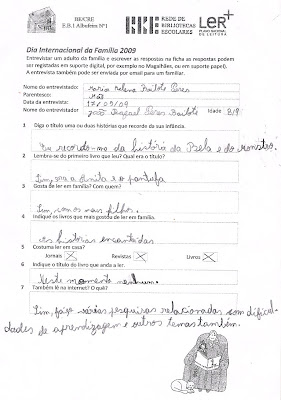 BECRE
E.B.1 Albufeira Nº1
REDE DE
BIBLIOTECAS
ESCOLARES
LER+
PLANO NACIONAL
DE LEITURA
Dia Internacional da Família 2009
Entrevistar um adulto da família e escrever as respostas na ficha as respostas podem
ser registadas em suporte digital, por exemplo no Magalhães, ou em suporte papel).
A entrevista também pode ser enviada por email para um familiar.
Nome do entrevistado: Maria Helena Bailote Peres
Parentesco: Mãe
Data da entrevista: 17/05/09
Nome do entrevistador: João Rafael Peres Bailote Idade
1 Diga o título uma ou duas histórias que recorde da sua infância.
Eu recordo-me da história da Bela e do monstro.
2 Lembra-se do primeiro livro que leu? Qual era o título?
Sim, era a Anita e o pantufa
3 Gosta de ler em família? Com quem?
Sim, com os meus filhos.
4 Indique os livros que mais gostou de ler em família.
As histórias encantadas
5 Costuma ler em casa?
Jornais X Revistas X Livros X
6 Indique o título do livro que anda a ler.
Neste momento nenhum.
7 Também lê na internet? O quê?
Sim, faço várias pesquisas relacionadas com dificul-
dades de aprendizagem e outros temas também.